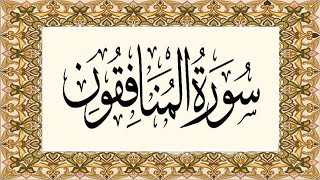 سُورَةُ المُنَافِقُون